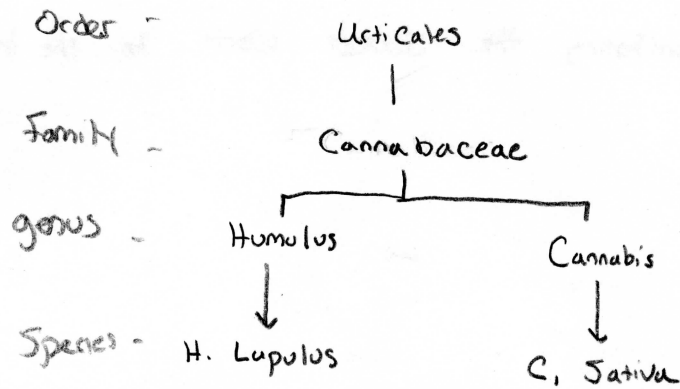 Order - Urticales
Family - Cannabaceae
genus - Humulus Cannabis
Species - H. Lupulus C. Sativa